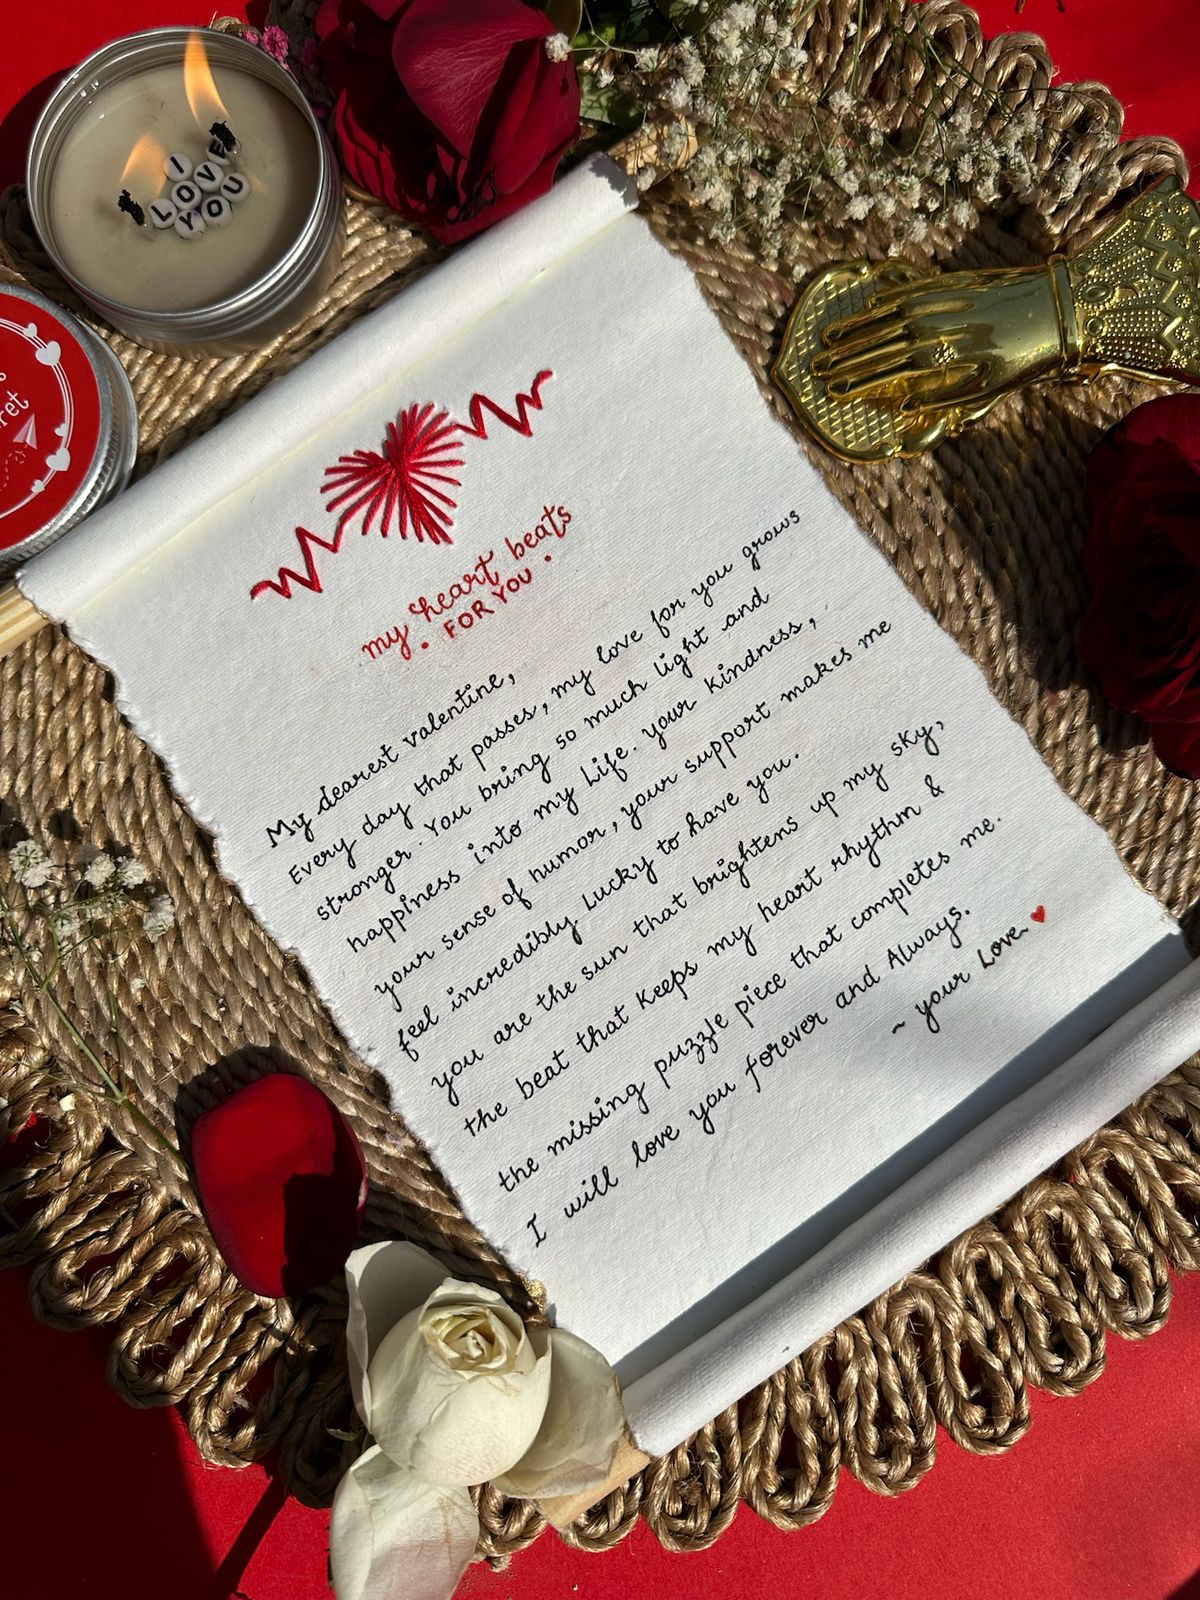 I
LOVE
YOU
my heart beats
• FOR YOU •
My dearest valentine,
Every day that passes, my love for you grows
stronger. You bring so much light and
happiness into my Life. your kindness,
your sense of humor, your support makes me
feel incredibly Lucky to have you.
you are the sun that brightens up my sky,
the beat that keeps my heart rhythm &
the missing puzzle piece that completes me.
I will love you forever and Always.
~ your Love ♥